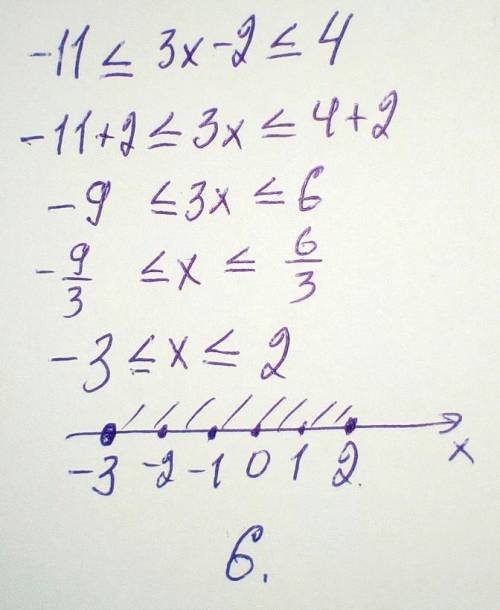 -11 ≤ 3x-2 ≤ 4
-11+2 ≤ 3x ≤ 4+2
-9 ≤ 3x ≤ 6
-9/3 ≤ x ≤ 6/3
-3 ≤ x ≤ 2
-3 -2 -1 0 1 2 x
6.